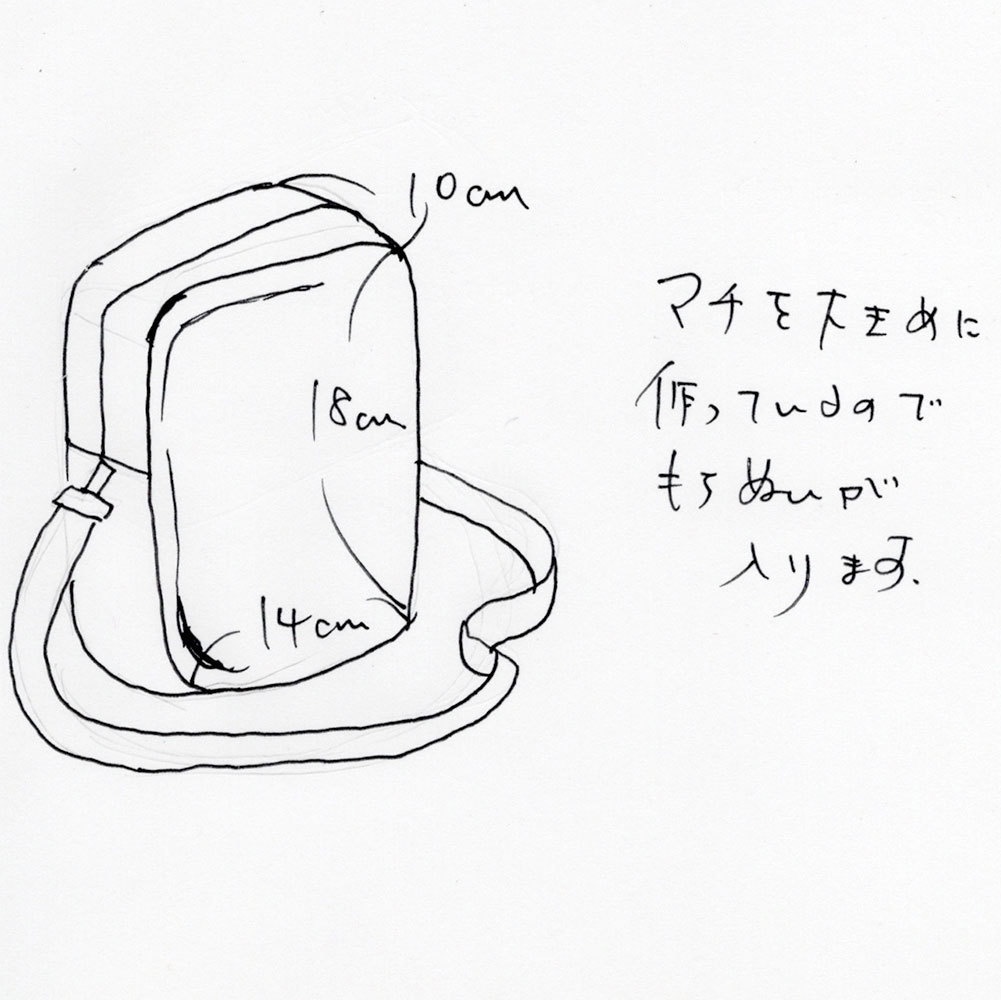 10cm
18cm
14cm
マチを大きめに
作っているので
もちぬいが
入ります.